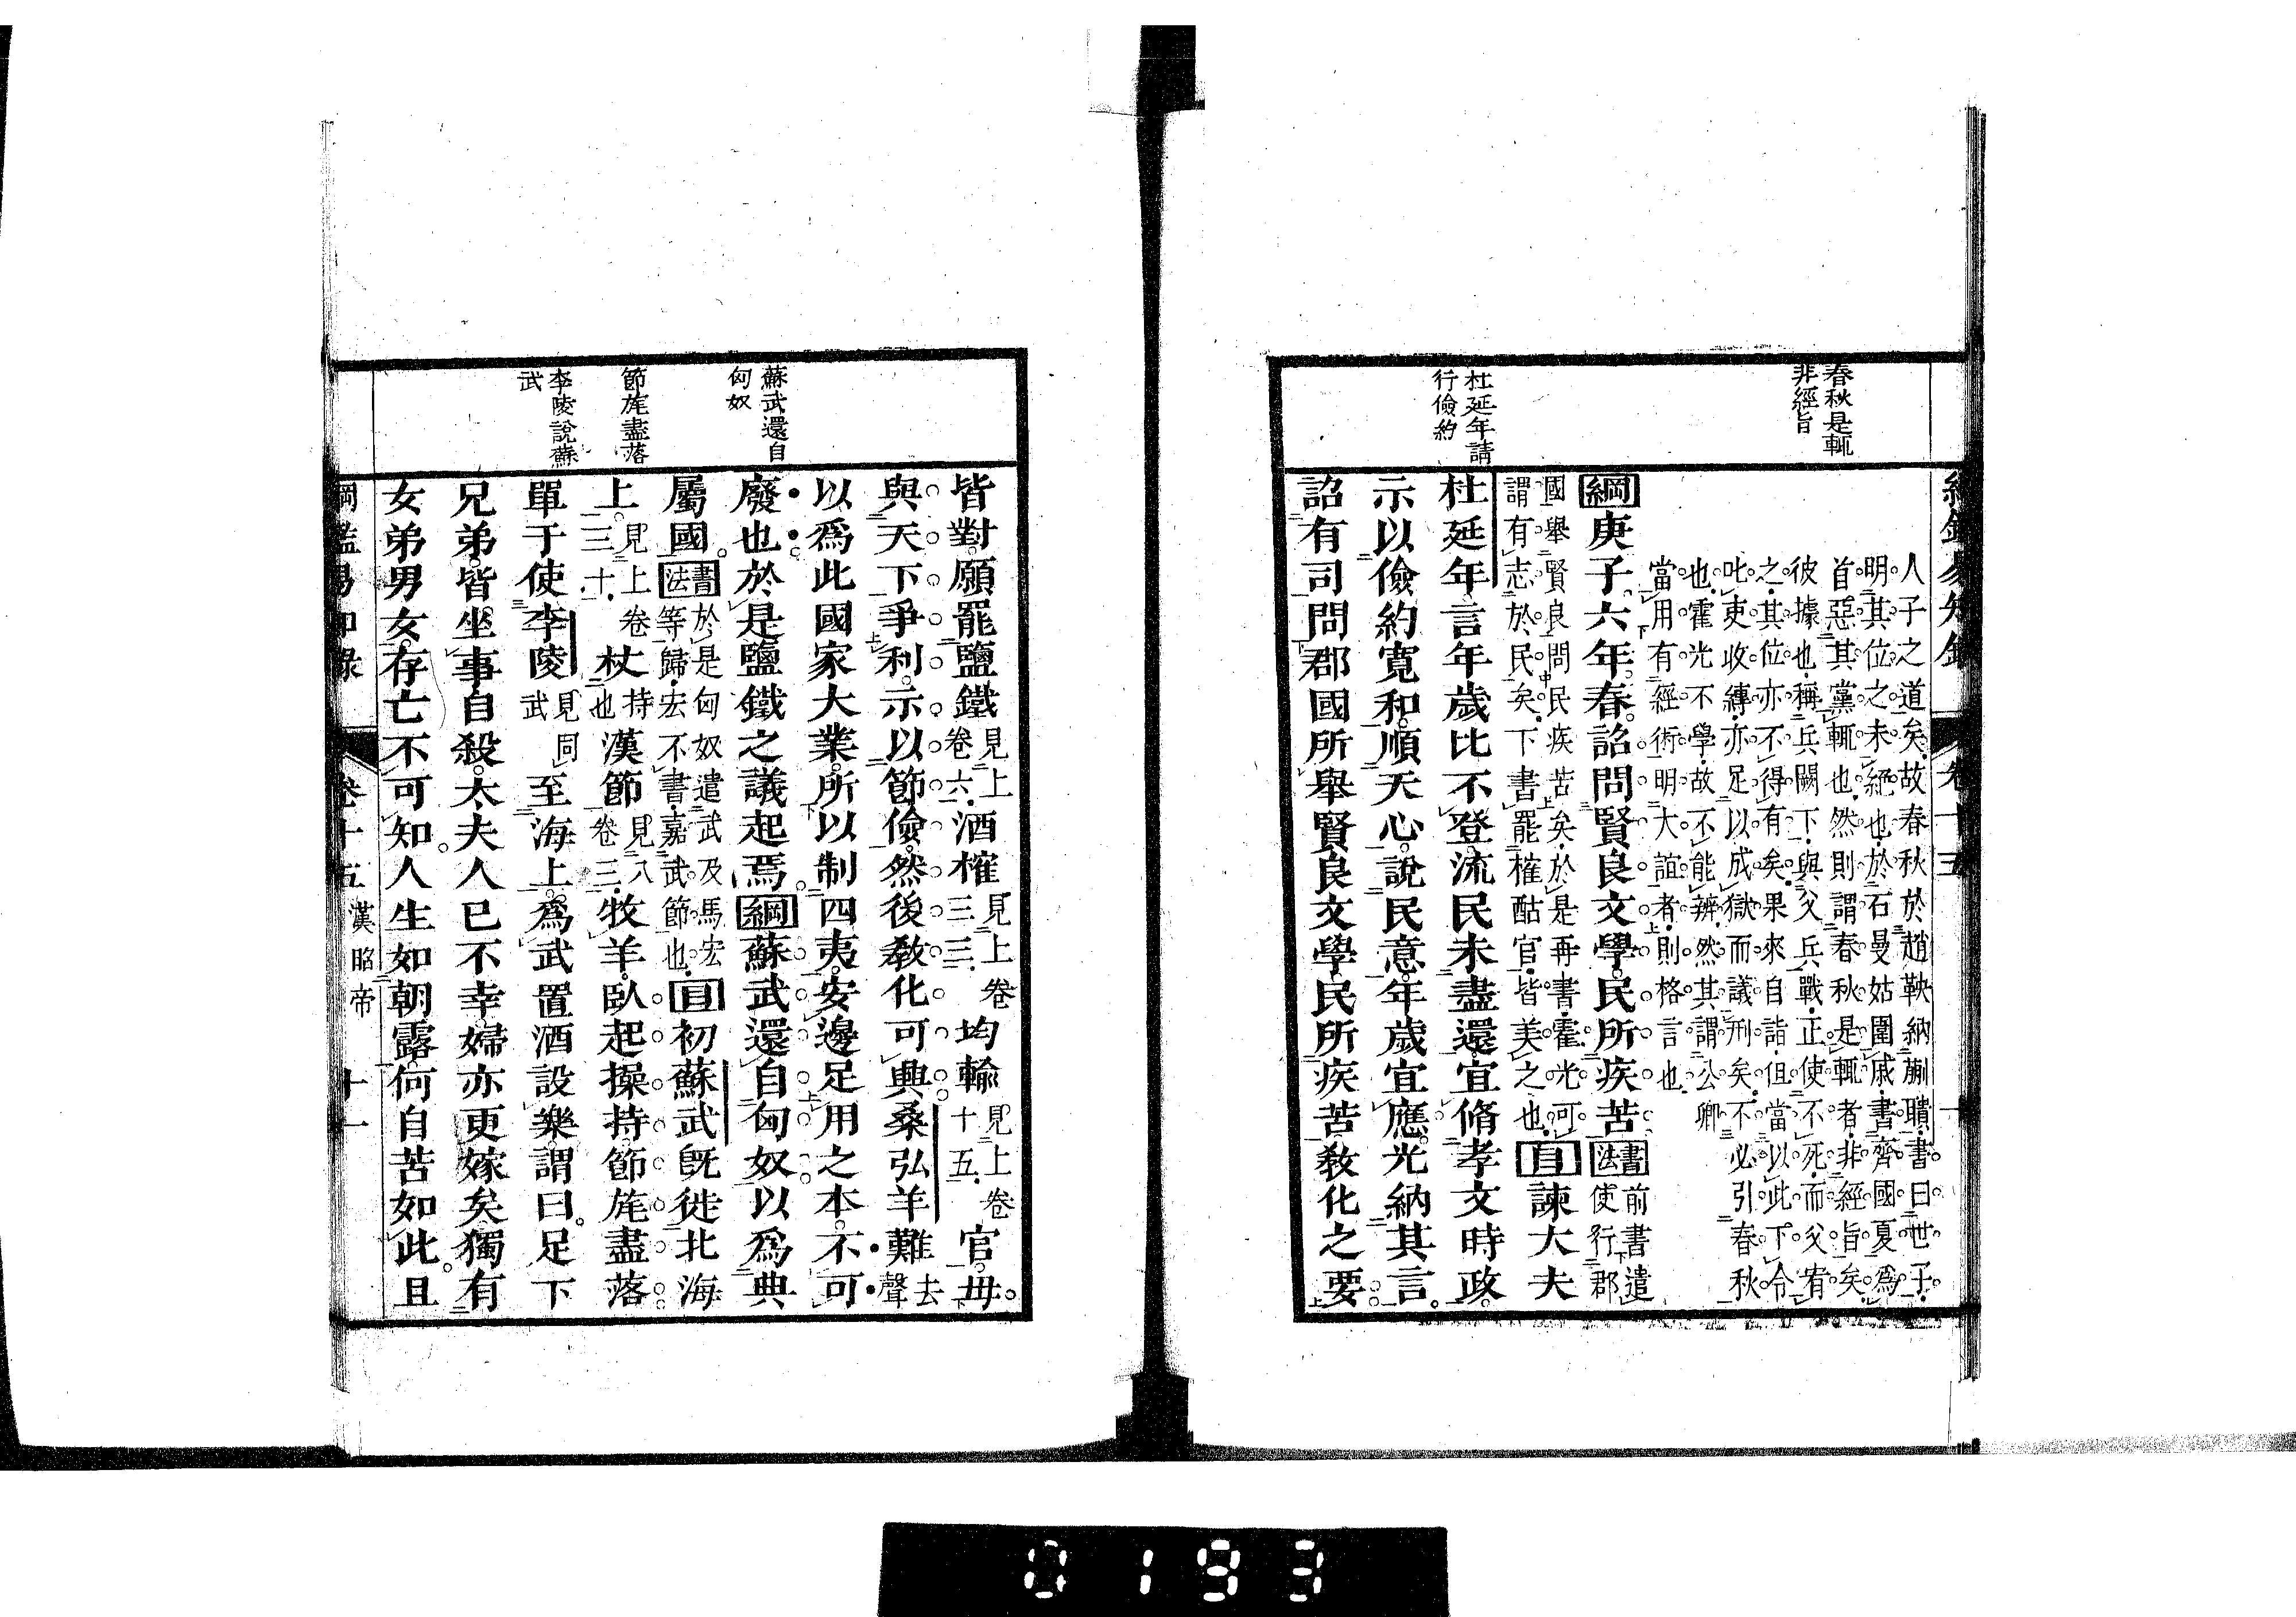 春秋是輒
非經旨
杜延年請
行儉約
人子之道矣故春秋於趙鞅納蒯聵書曰世子
明其位之未絕也於石曼姑圍戚書齊國夏爲
首惡其黨輒也然則謂春秋是輒者非經旨矣
彼據也稱兵闕下與父兵戰正使不死而父宥
之其位亦不得有矣果來自詣但當以此下令
叱吏收縛亦足以成獄而議刑矣不必引春秋
也霍光不學故不能辨然其謂公卿
當用有經術明大誼者則格言也
綱庚子六年春詔問賢良文學民所疾苦
書法前書遣使行郡
國舉賢良問民疾苦矣於是再書霍光可
謂有志於民矣下書罷榷酤官皆美之也
目諫大夫
杜延年言年歲比不登流民未盡還宜脩孝文時政
示以儉約寬和順天心說民意年歲宜應光納其言
詔有司問郡國所舉賢良文學民所疾苦敎化之要
蘇武還自
匈奴
節旄盡落
李陵說蘇
武
皆對願罷鹽鐵見上卷六酒榷見上卷三三均輸見上卷十五官毋
與天下爭利示以節儉然後敎化可興桑弘羊難去聲
以爲此國家大業所以制四夷安邊足用之本不可
廢也於是鹽鐵之議起焉綱蘇武還自匈奴以爲典
屬國書法於是匈奴遣武及馬宏等歸宏不書嘉武節也目初蘇武旣徙北海
上見上卷三十杖持也漢節見八卷三牧羊臥起操持節旄盡落
單于使李陵見同武至海上爲武置酒設樂謂曰足下
兄弟皆坐事自殺太夫人已不幸婦亦更嫁矣獨有
女弟男女存亡不可知人生如朝露何自苦如此且
綱鑑易知錄 卷十五 漢昭帝 十一
0193